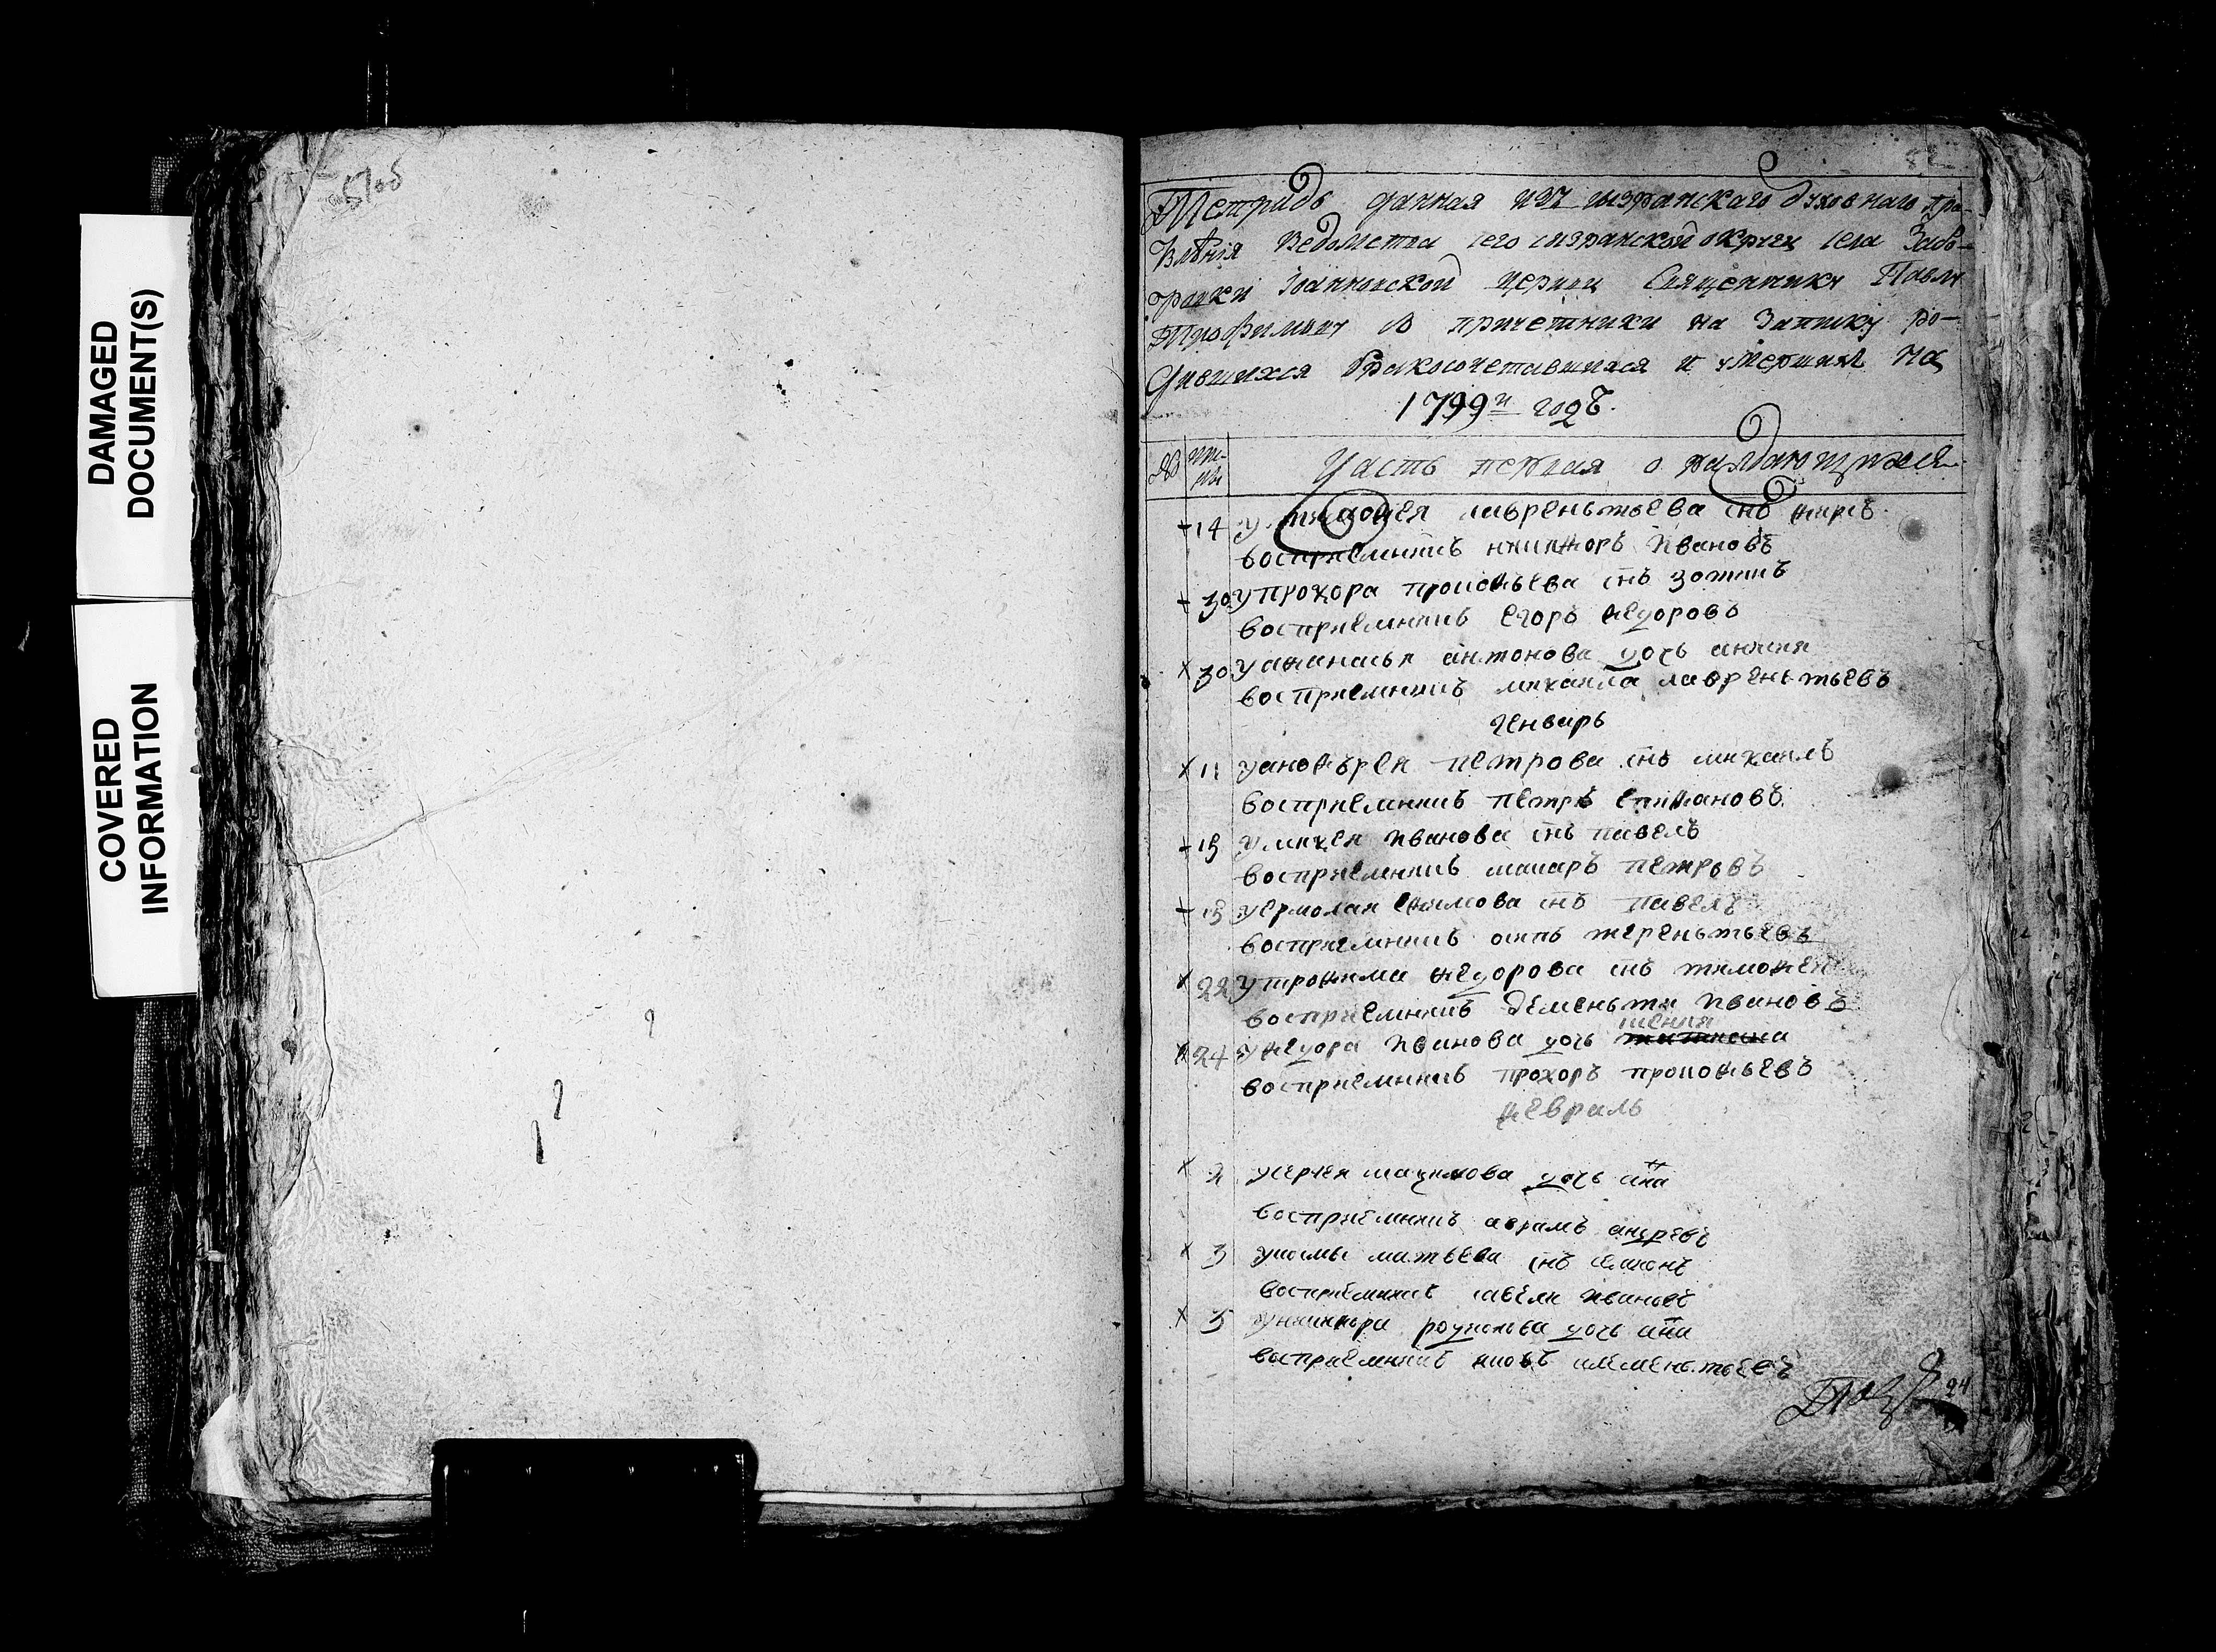 DAMAGED
DOCUMENT(S)
COVERED
INFORMATION
57об
52
Тетридь данная изъ сызранскаго духовнаго пра-
влѣнія ведомства сего сызранской округи села Забо-
ровки Іоанновской церкви священнику Павлу
Трофимову в причетники на записку ро-
дившихся бракосочетавшихся и умершихъ на
1799й годъ.
№ Част первая о раждающихся
14 у тимофея лавреньтьева снъ
восприемникъ никифоръ ивановъ
30 у прохора прокофьева снъ зотикъ
восприемникъ егоръ федоровъ
30 у афанасья антонова дочь
восприемникъ михаила лавреньтьевъ
генварь
11 у петрова снъ михаилъ
восприемникъ петръ епифановъ
15 у михея иванова снъ павелъ
восприемникъ макаръ петровъ
15 у ермолая ефимова снъ павелъ
восприемникъ осипъ тереньтьевъ
22 у трофима федорова снъ тимофей
восприемникъ деменьти ивановъ
24 у федора иванова дочь
восприемникъ прохоръ прокофьевъ
февраль
2 у сергея максимова дочь анна
восприемникъ аврамъ андревъ
3 у матвева снъ
восприемникъ савели ивановъ
5 у никифора родионова дочь анна
восприемникъ клеменьтьевъ
24